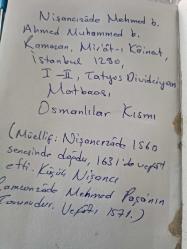 Nişancızâde Mehmed b.
Ahmed Muhammed b.
Ramazan, Mir'ât-ı Kâinat,
İstanbul 1290,
I-II, Tatyos Divitciyan
Matbaası
Osmanlılar Kısmı
(Müellif: Nişancızâde 1560
senesinde doğdu, 1631'de vefat
etti. Küçük Nişancı
Ramazanzâde Mehmed Paşa'nın
Torunudur. Vefatı 1571.)